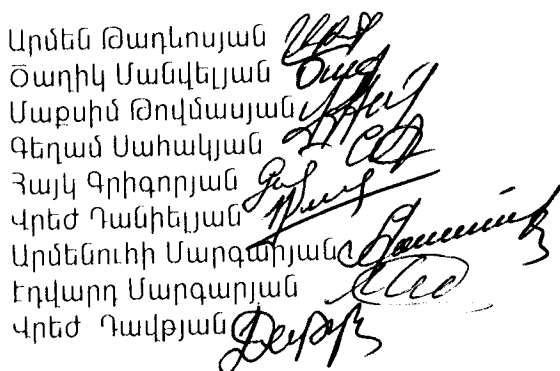 Արմեն Թադևոսյան
Ծաղիկ Մանվելյան
Մաքսիմ Թովմասյան
Գեղամ Սահակյան
Հայկ Գրիգորյան
Վրեժ Դանիելյան
Արմենուհի Մարգարյան
Էդվարդ Մարգարյան
Վրեժ Դավթյան